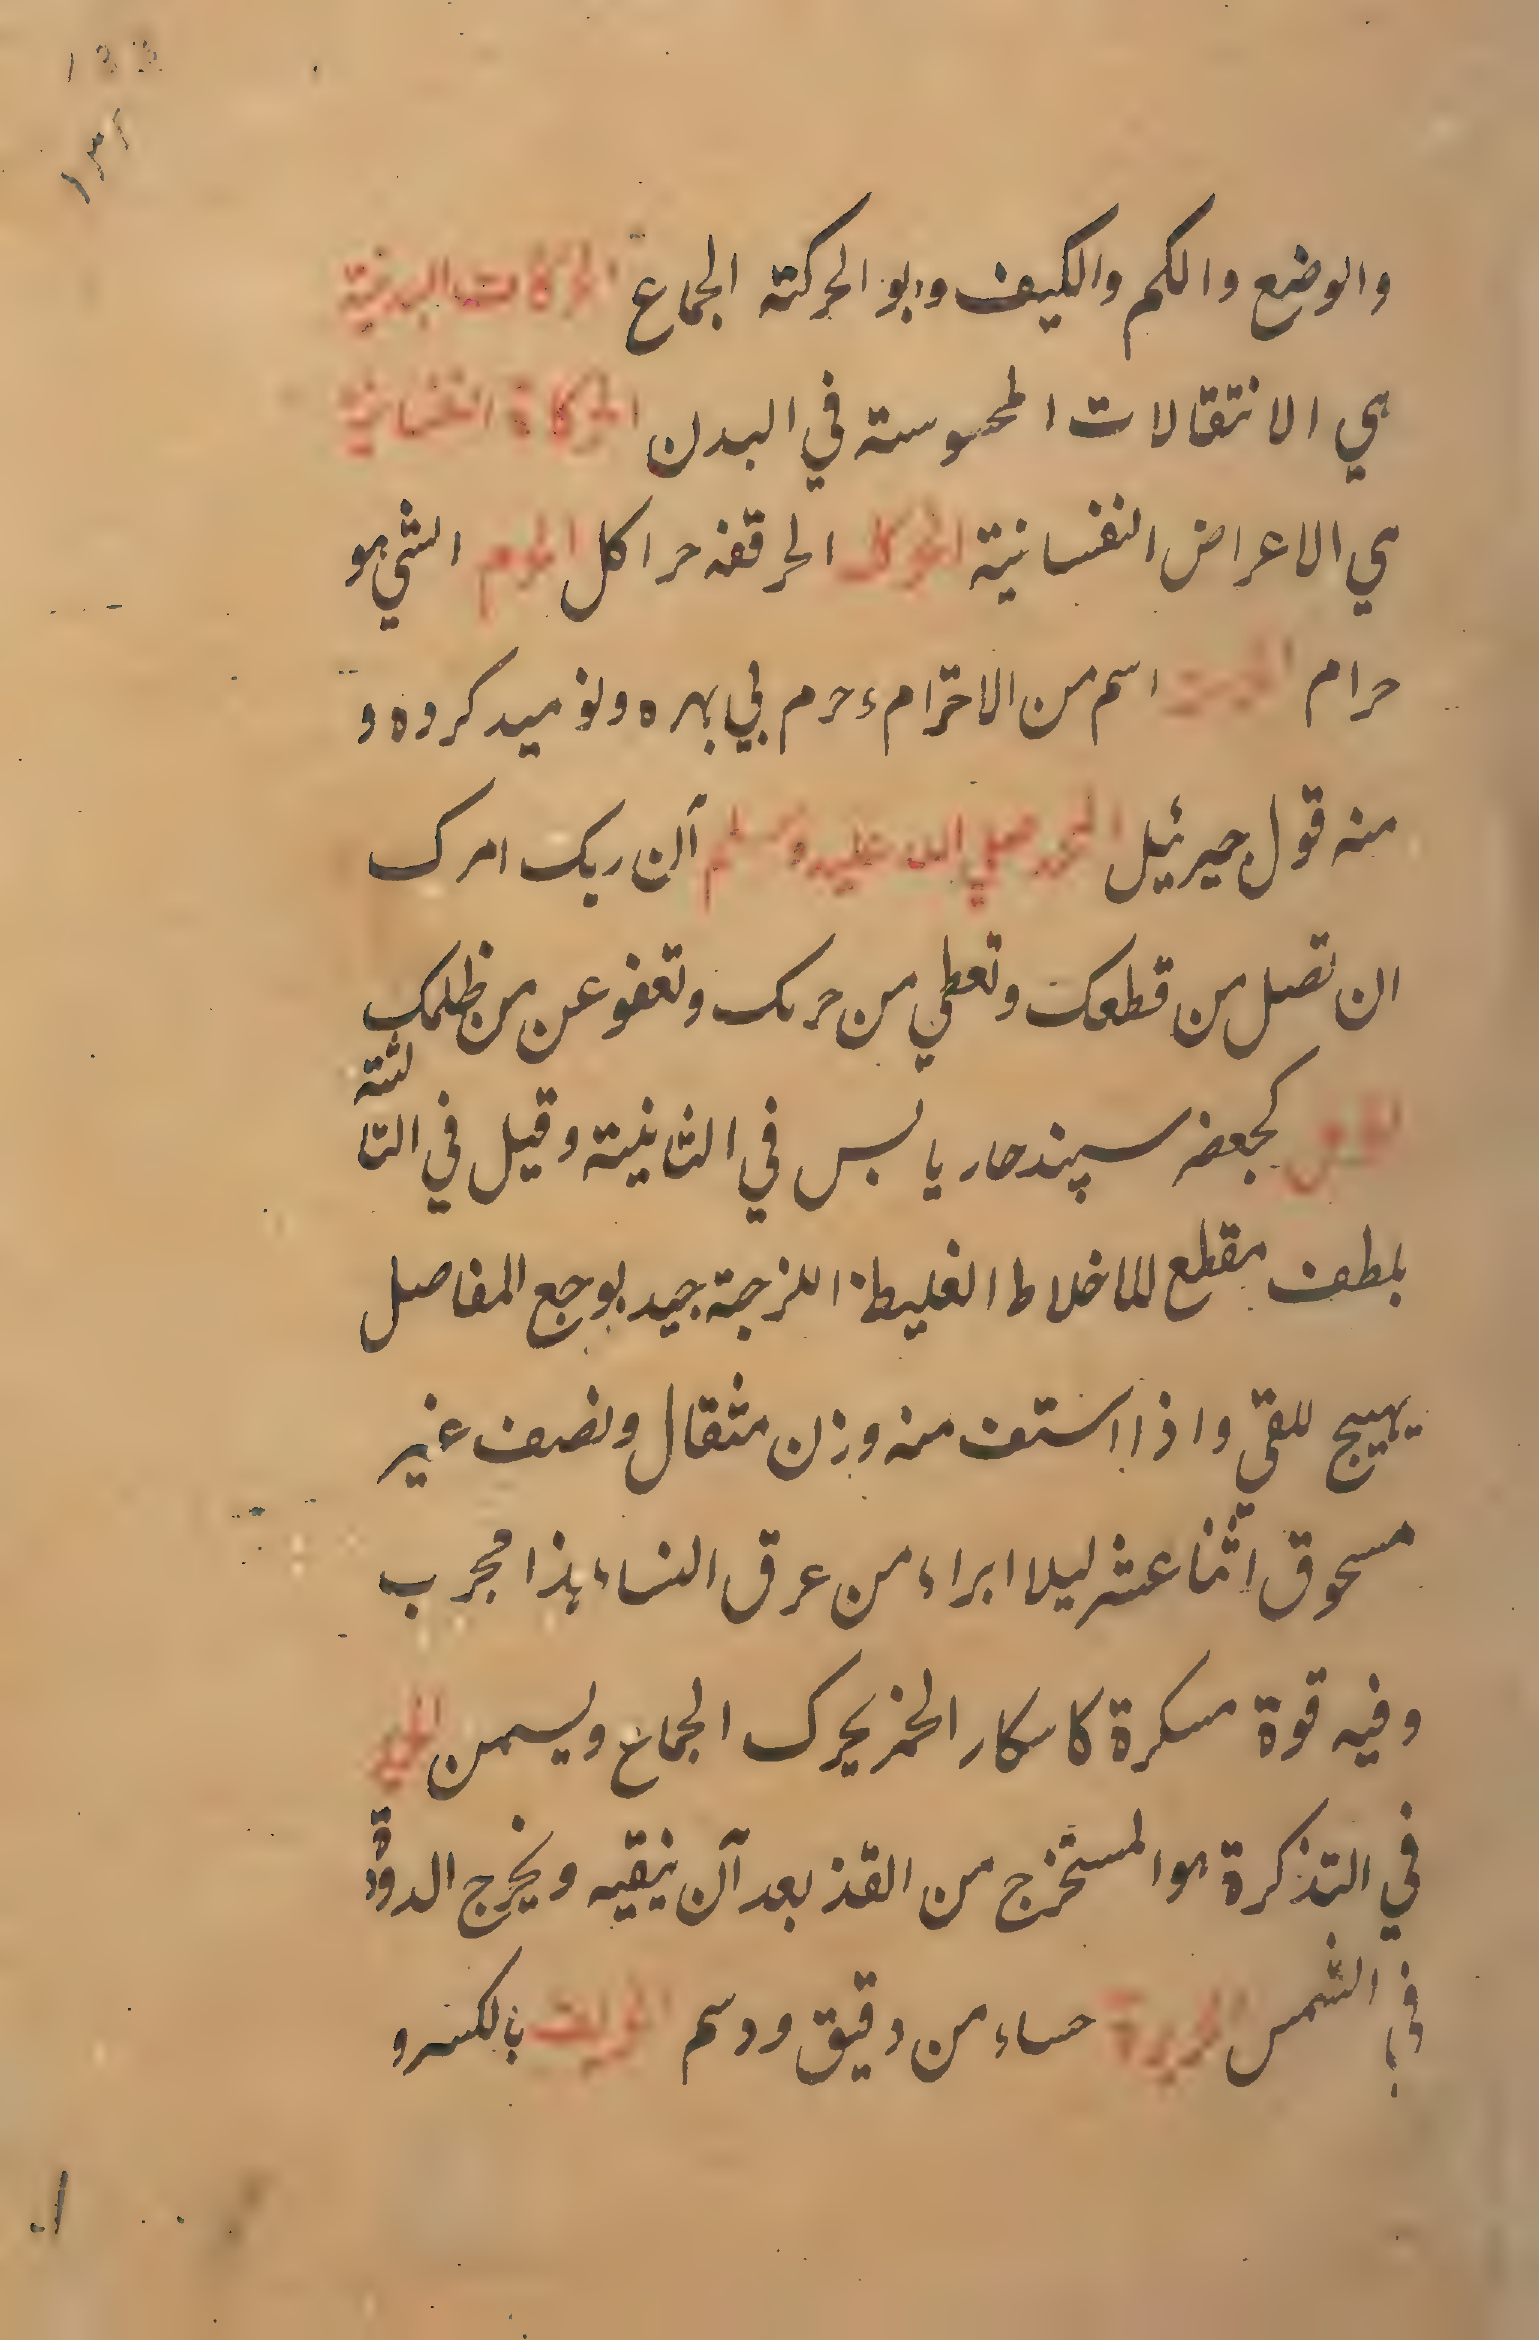 والوضع والكم والكيف وابو الحركته الجماع الحركات البدنية
هي الانتقالات المحسوسته في البدن الحركاة النفسانية
هي الاعراض النفسانية الحركك الحرقفه حراكل الحرم الشي هو
حرام اسم من الاحترام حرم بي بهره ونوميد كروه و
منه قول جبرئيل لمحمد صلي الله عليه وسلم آن ربك امرك
ان تصل من قطعك وتعطي من حرمك وتعفو عن من ظلمك
كجعفر سپند حار يابس في الثانيته وقيل في الثا
لثته
ملطف مقطع للاخلاط الغليظة اللزجة جيد لوجع المفاصل
يهيج للقي واذا استف منه وزن مثقال ونصف غير
مسحوق اثنا عشر ليلا ابراء من عرق النساء هذا مجرب
وفيه قوة مسكرة كاسكار الخمر يحرك الجماع ويسمن الحرير
في التذكرة هو المستخرج من القز بعد آن ينقيه ويخرج الدودة
في الشمس الحريرة حساء من دقيق ودسم الحريف بالكسر و